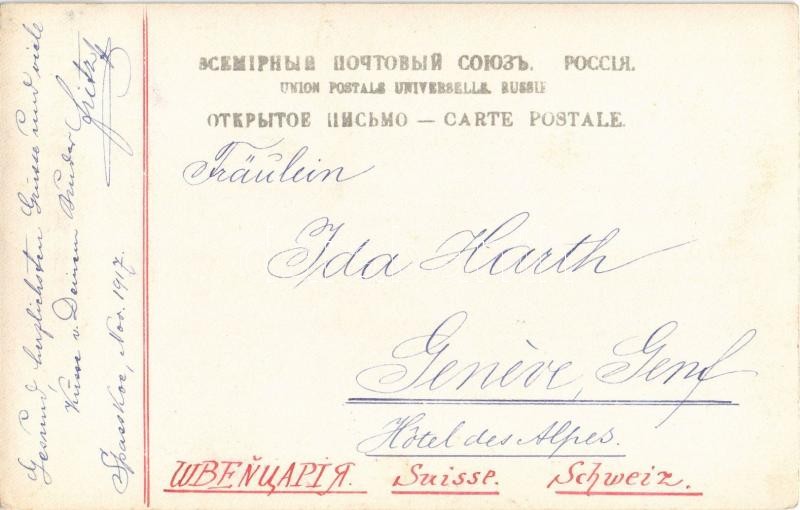 ВСЕМІРНЫЙ ПОЧТОВЫЙ СОЮЗЪ. РОССІЯ.
UNION POSTALE UNIVERSELLE. RUSSIE
ОТКРЫТОЕ ПИСЬМО — CARTE POSTALE.
Fräulein
Ida Harth
Genève, Genf
Hôtel des Alpes.
ШВЕЙЦАРІЯ. Suisse. Schweiz.
Gesund, herzlichsten Grüsse und viele
Küsse v. Deinem Bruder Fritz
Spasskoe, Nov. 1917.